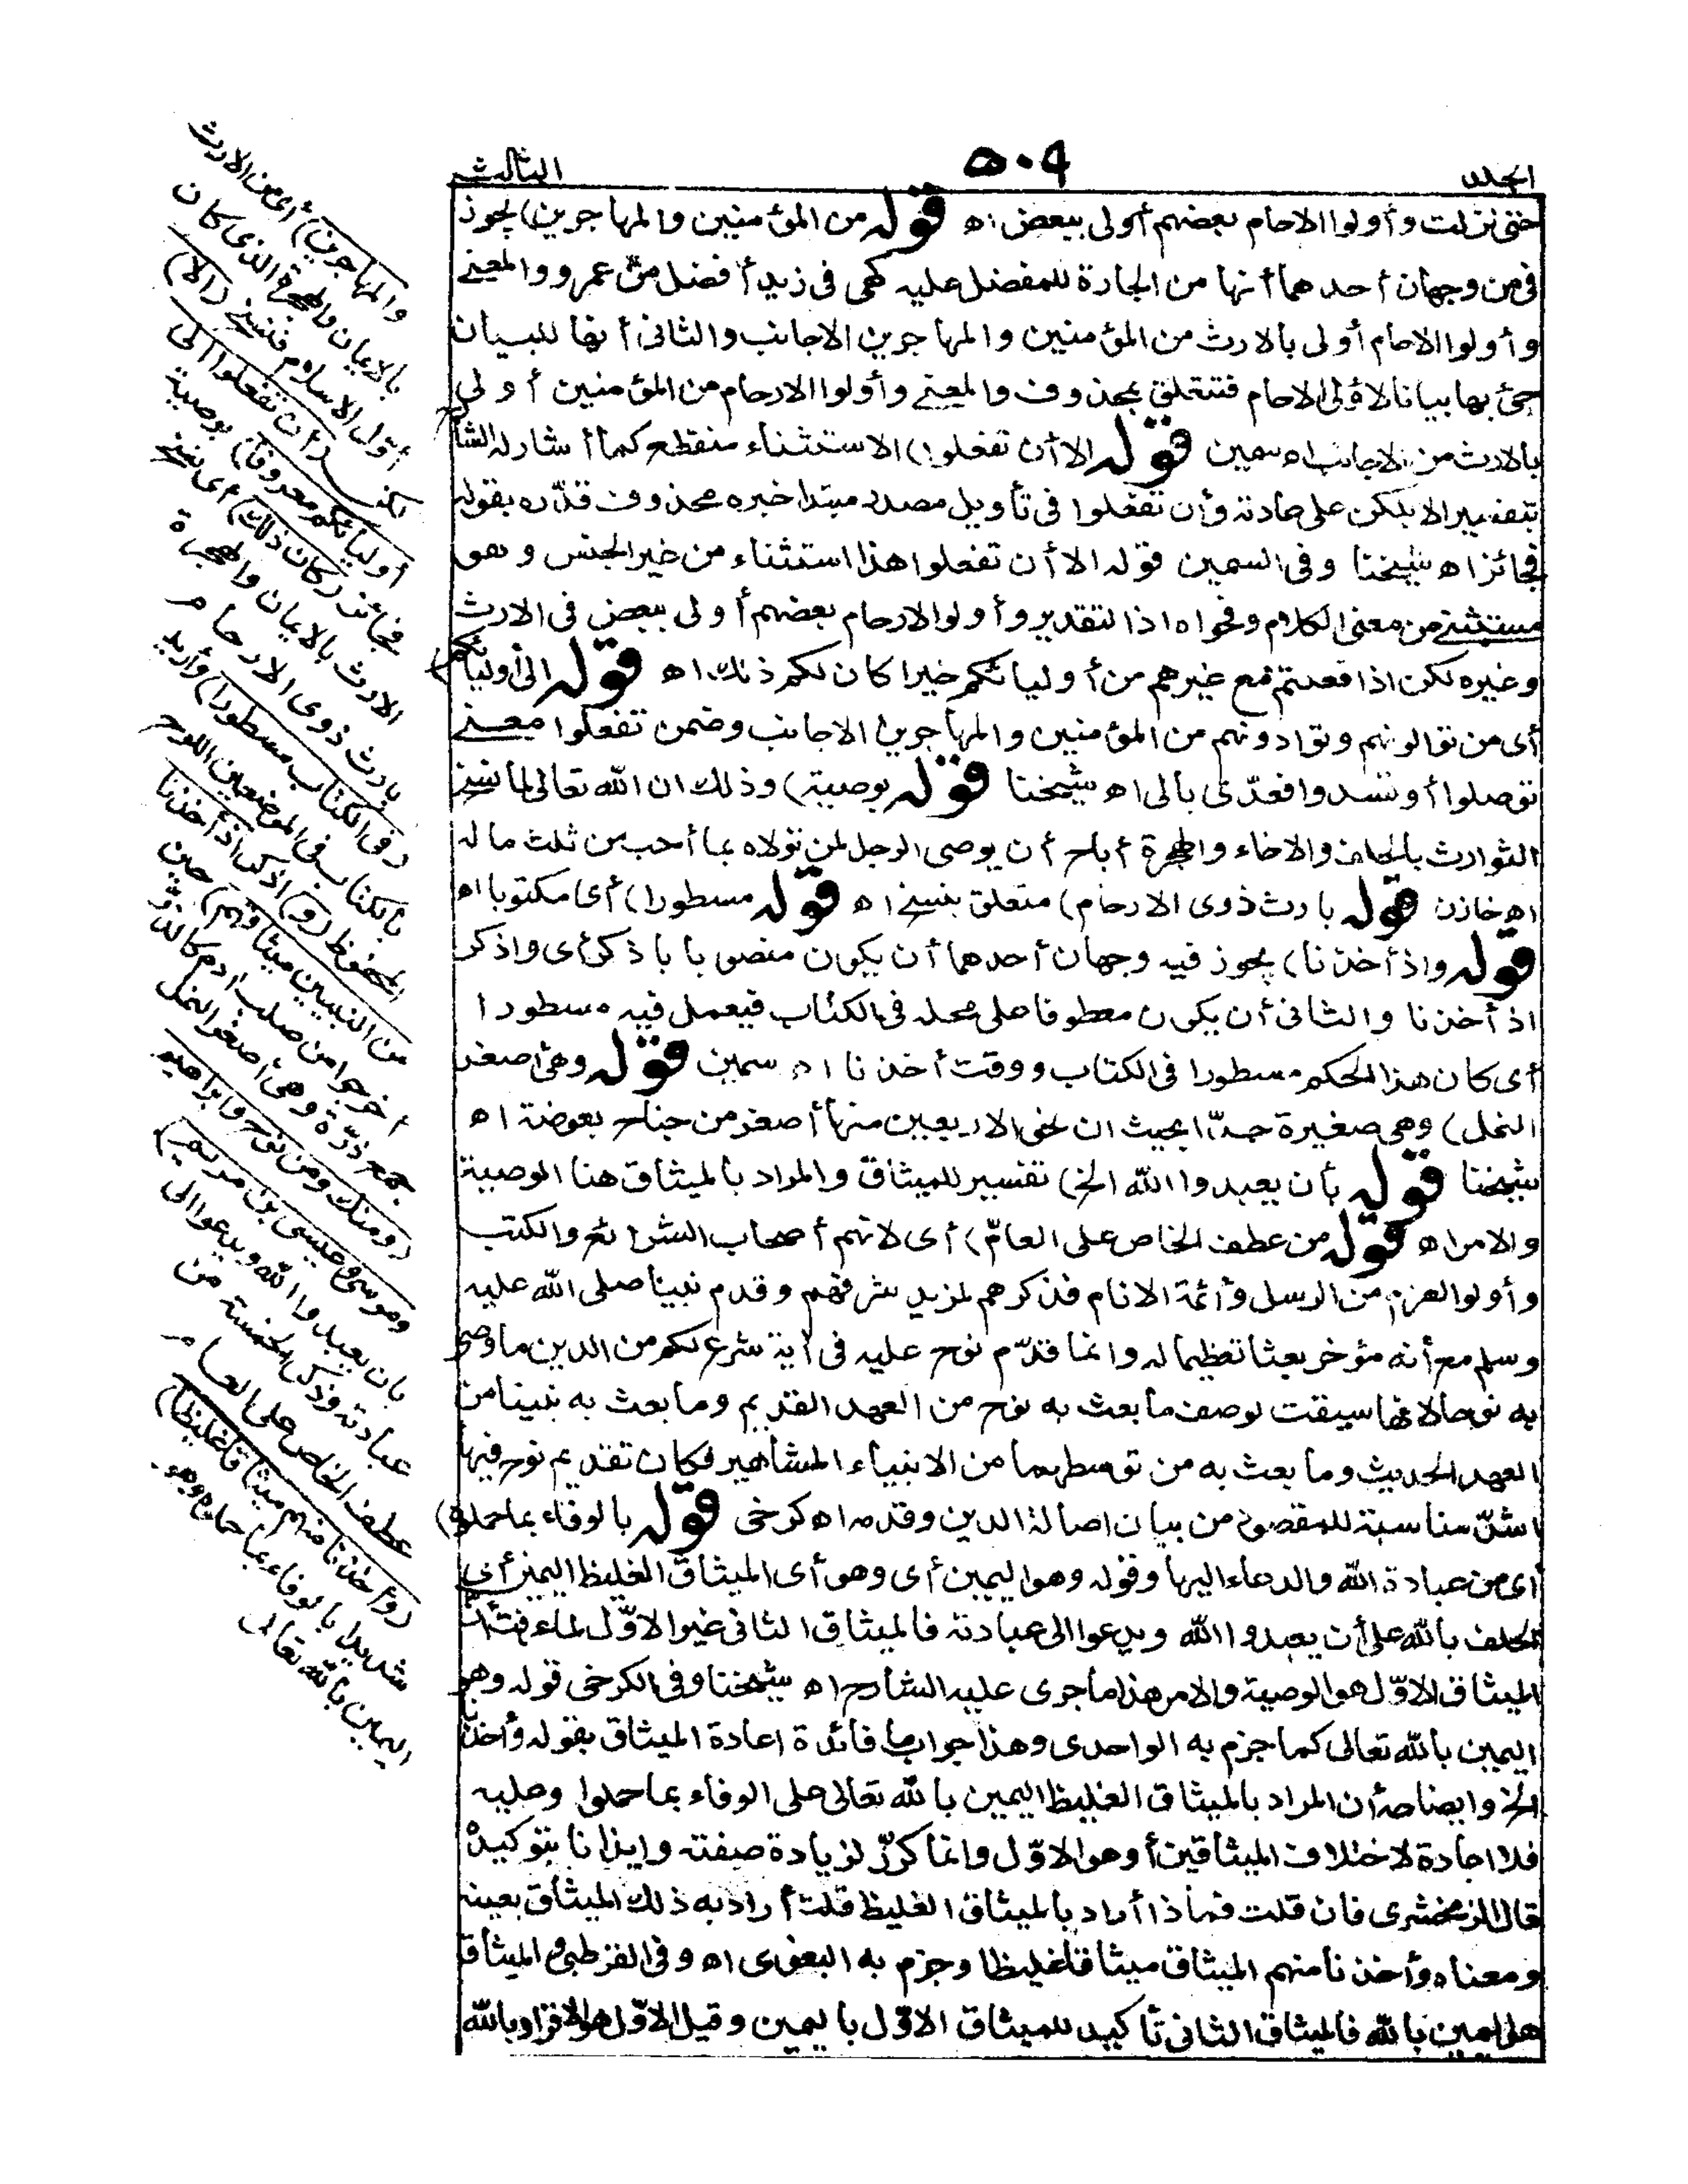 المجلد
٥٠٩
الثالث
حتى نزلت وأولوا الارحام بعضهم أولى ببعض اه قوله من المؤمنين والمهاجرين) يجوز
فى من وجهان أحدهما أنها من الجارة للمفضل عليه كهى فى زيد أفضل من عمرو والمعنى
وأولوا الارحام أولى بالارث من المؤمنين والمهاجرين الاجانب والثانى أنها للبيان
جئ بها بيانا لاولى الارحام فتتعلق بمحذوف والمعنى وأولوا الارحام من المؤمنين أولى
بالارث من الاجانب اه سمين قوله الا أن تفعلوا) الاستثناء منقطع كما أشار له الشارح
بتفسير الا بلكن على عادته وأن تفعلوا فى تأويل مصدر مبتدا خبره محذوف قدّره بقوله
فجائز اه شيخنا وفى السمين قوله الا أن تفعلوا هذا استثناء من غير الجنس وهو
مستثنى من معنى الكلام وفحواه اذ التقدير وأولوا الارحام بعضهم أولى ببعض فى الارث
وغيره لكن اذا فعلتم مع غيرهم من أوليائكم خيرا كان لكم ذلك اه قوله الى أوليائكم)
أى من توالونهم وتوادونهم من المؤمنين والمهاجرين الاجانب وضمن تفعلوا معنى
توصلوا أو تسدوا فعدّى بالى اه شيخنا قوله بوصية) وذلك ان الله تعالى لما نسخ
التوارث بالحلف والاخاء والهجرة أباح أن يوصى الرجل لمن تولاه بما أحب من ثلث ماله
اه خازن قوله بارث ذوى الارحام) متعلق بنسخ اه قوله مسطورا) أى مكتوبا اه
قوله واذ أخذنا) يجوز فيه وجهان أحدهما أن يكون منصوبا باذكر أى واذكر
اذ أخذنا والثانى أن يكون معطوفا على محل فى الكتاب فيعمل فيه مسطورا
أى كان هذا الحكم مسطورا فى الكتاب ووقت أخذنا اه سمين قوله وهى أصغر
النمل) وهى صغيرة جدّا بحيث ان نحو الاربعين منها أصغر من جناح بعوضة اه
شيخنا قوله بأن يعبدوا الله الخ) تفسير للميثاق والمراد بالميثاق هنا الوصية
والامر اه قوله من عطف الخاص على العامّ) أى لانهم أصحاب الشرائع والكتب
وأولوا العزم من الرسل وأئمة الانام فذكرهم لمزيد شرفهم وقدم نبينا صلى الله عليه
وسلم مع أنه مؤخر بعثا تعظيما له وانما قدّم نوح عليه فى آية شرع لكم من الدين ما وصى
به نوحا لانها سيقت لوصف ما بعث به نوح من العهد القديم وما بعث به نبينا من
العهد الحديث وما بعث به من توسطهما من الانبياء المشاهير فكان تقديم نوح فيها
اشدّ مناسبة للمقصود من بيان اصالة الدين وقدمه اه كرخى قوله بالوفاء بما حملوه)
أى من عبادة الله والدعاء اليها وقوله وهو اليمين أى وهو أى الميثاق الغليظ اليمين أى
الحلف بالله على أن يعبدوا الله ويدعوا الى عبادته فالميثاق الثانى غير الاوّل لما عرفت أن
الميثاق الاوّل هو الوصية والامر هذا ما جرى عليه الشارح اه شيخنا وفى الكرخى قوله وهو
اليمين بالله تعالى كما جزم به الواحدى وهذا جواب ما فائدة اعادة الميثاق بقوله وأخذنا
الخ وايضاحه أن المراد بالميثاق الغليظ اليمين بالله تعالى على الوفاء بما حملوا وعليه
فلا اعادة لاختلاف الميثاقين أو هو الاوّل وانما كرّر لزيادة صفته وايذانا بتوكيده
قال الزمخشرى فان قلت فماذا أراد بالميثاق الغليظ قلت أراد به ذلك الميثاق بعينه
ومعناه وأخذنا منهم الميثاق ميثاقا غليظا وجزم به البغوى اه وفى القرطبى والميثاق
هو اليمين بالله فالميثاق الثانى تأكيد للميثاق الاوّل باليمين وقيل الاوّل هو الاقرار بالله
والمهاجرين) أى من الارث
بالايمان والهجرة الذى كان
أوّل الاسلام فنسخ (الا)
لكن (أن تفعلوا الى
أوليائكم معروفا) بوصية
فجائز (كان ذلك) أى نسخ
الارث بالايمان والهجرة
بارث ذوى الارحام
(فى الكتاب مسطورا) وأريد
بالكتاب فى الموضعين اللوح
المحفوظ (و) اذكر (اذ أخذنا
من النبيين ميثاقهم) حين
أخرجوا من صلب ادم كالذر
جمع ذرّة وهى أصغر النمل
(ومنك ومن نوح وابراهيم
وموسى وعيسى بن مريم)
بان يعبدوا الله ويدعوا الى
عبادته وذكر الخمسة من
عطف الخاص على العام
(وأخذنا منهم ميثاقا غليظا)
شديدا بالوفاء بما حملوه وهو
اليمين بالله تعالى